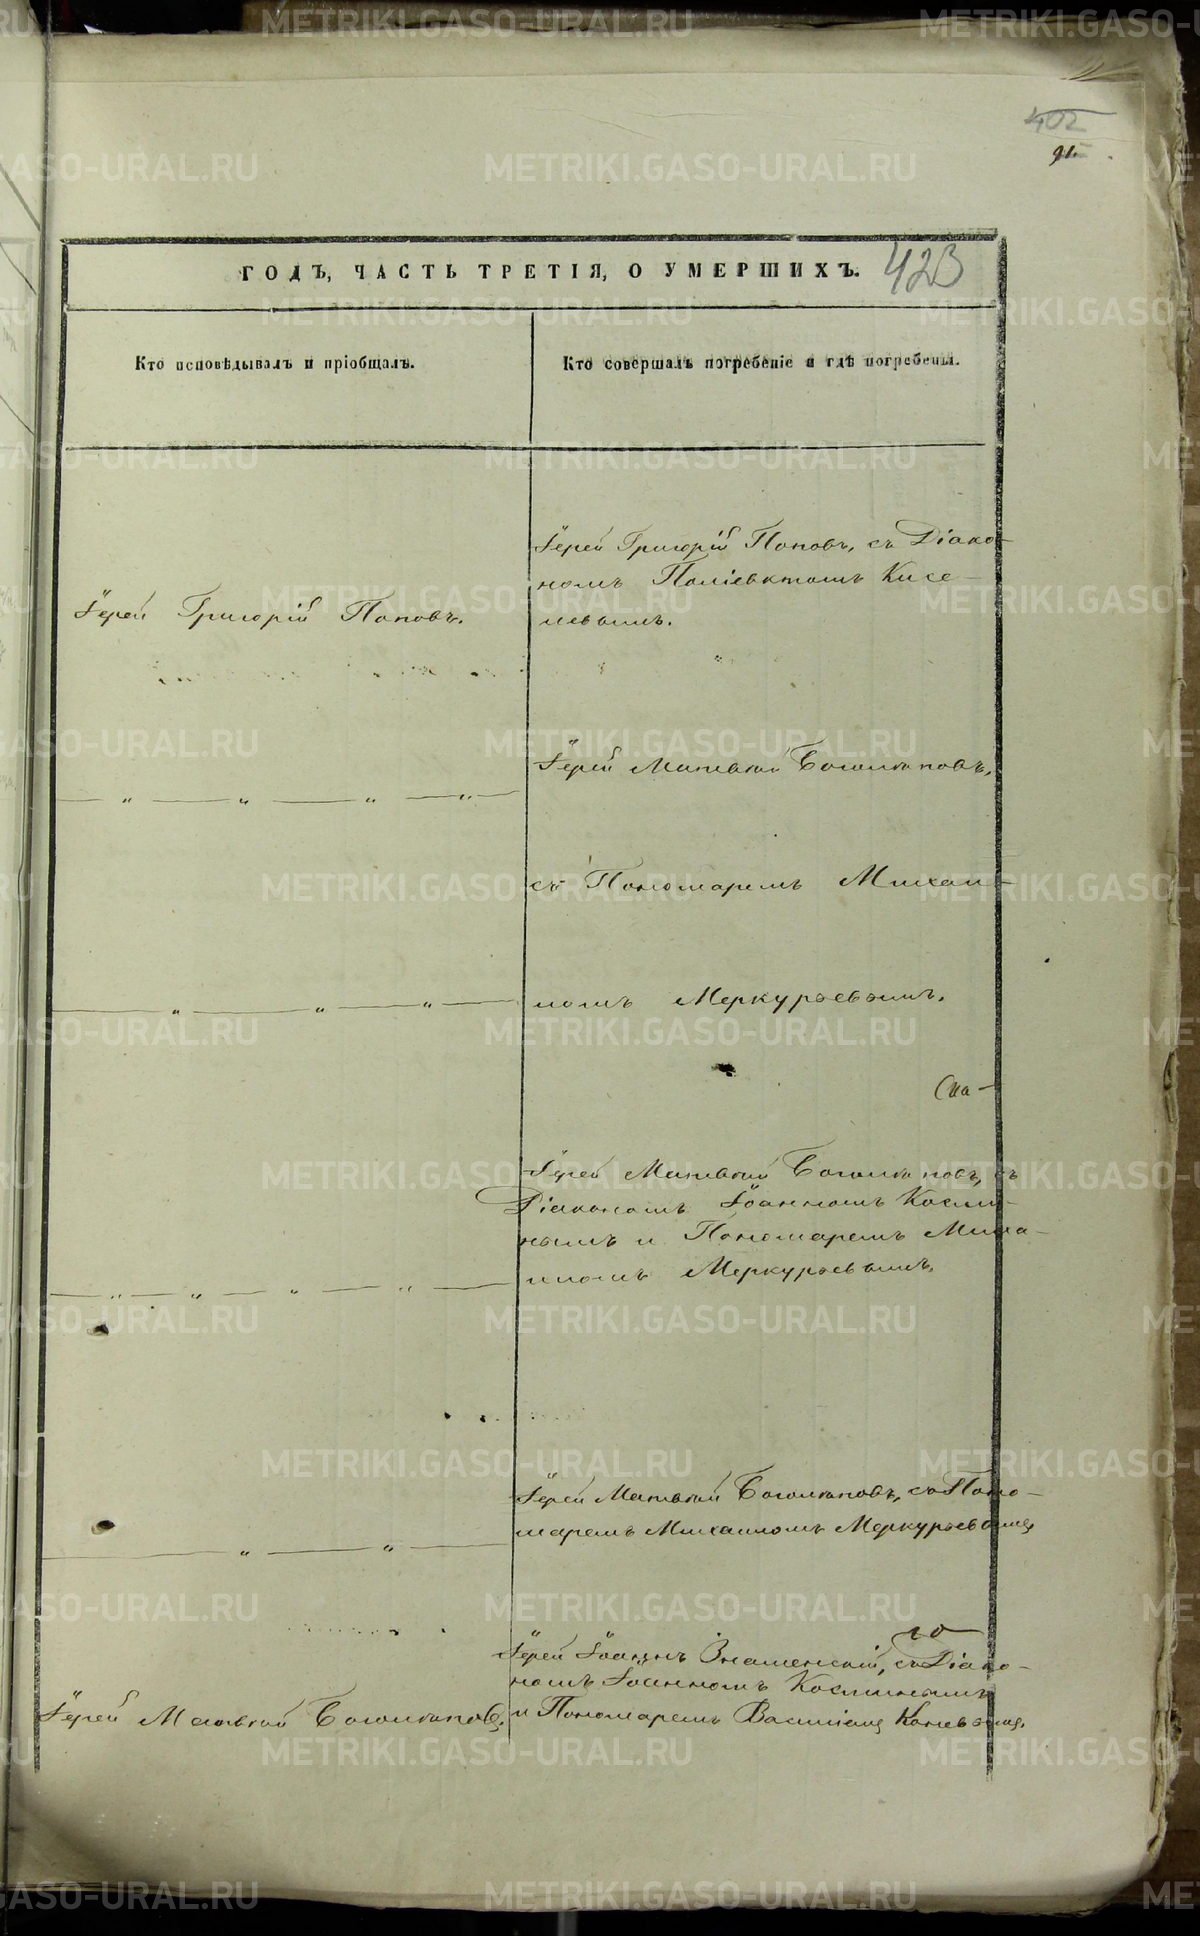 402
91.
ГОДЪ, ЧАСТЬ ТРЕТІЯ, О УМЕРШИХЪ.
423
Кто исповѣдывалъ и пріобщалъ.
Кто совершалъ погребеніе и гдѣ погребены.
Іерей Григорій Поповъ, съ Діако-
номъ Поліевктомъ Кисе-
левымъ.
Іерей Григорій Поповъ.
Іерей Матвѣй Боголюповъ,
съ Пономаремъ Михаи-
ломъ Меркурьевымъ.
Іерей Матвѣй Боголюповъ, съ
Діакономъ Іоанномъ Косми-
нымъ и Пономаремъ Миха-
иломъ Меркурьевымъ.
Іерей Матвѣй Боголюповъ, съ Поно-
маремъ Михаиломъ Меркурьевымъ
Іерей Іоаннъ Знаменскій, съ Діако-
номъ Іоанномъ Косминымъ
и Пономаремъ Василіемъ
Іерей Матвѣй Боголюповъ.
METRIKI.GASO-URAL.RU